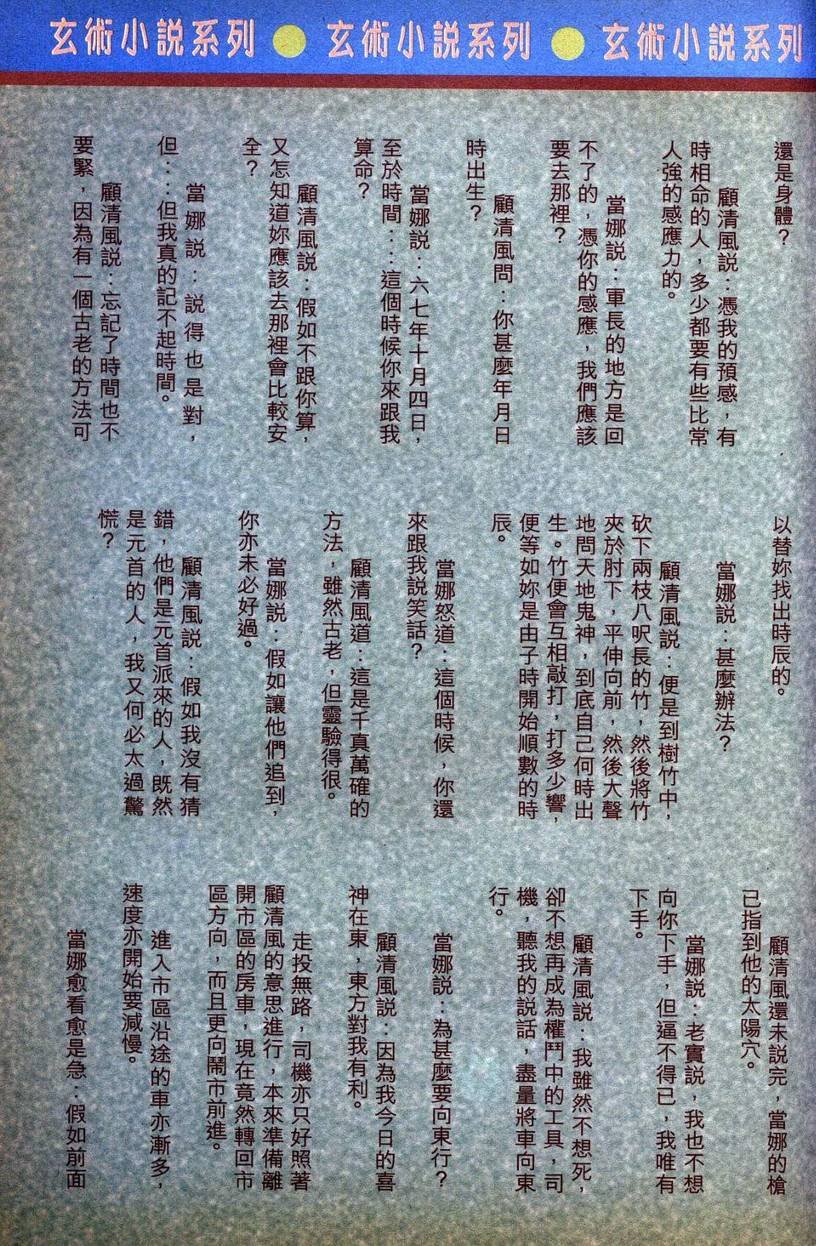 玄術小說系列 ● 玄術小說系列 ● 玄術小說系列
還是身體？
顧清風說：憑我的預感，有
時相命的人，多少都要有些比常
人強的感應力的。
當娜說：軍長的地方是回
不了的，憑你的感應，我們應該
要去那裡？
顧清風問：你甚麼年月日
時出生？
當娜說：六七年十月四日，
至於時間……這個時候你來跟我
算命？
顧清風說：假如不跟你算，
又怎知道妳應該去那裡會比較安
全？
當娜說：說得也是對，
但……但我真的記不起時間。
顧清風說：忘記了時間也不
要緊，因為有一個古老的方法可
以替妳找出時辰的。
當娜說：甚麼辦法？
顧清風說：便是到樹竹中，
砍下兩枝八呎長的竹，然後將竹
夾於肘下，平伸向前，然後大聲
地問天地鬼神，到底自己何時出
生。竹便會互相敲打，打多少響，
便等如妳是由子時開始順數的時
辰。
當娜怒道：這個時候，你還
來跟我說笑話？
顧清風道：這是千真萬確的
方法，雖然古老，但靈驗得很。
當娜說：假如讓他們追到，
你亦未必好過。
顧清風說：假如我沒有猜
錯，他們是元首派來的人，既然
是元首的人，我又何必太過驚
慌？
顧清風還未說完，當娜的槍
已指到他的太陽穴。
當娜說：老實說，我也不想
向你下手，但逼不得已，我唯有
下手。
顧清風說：我雖然不想死，
卻不想再成為權鬥中的工具，司
機，聽我的說話，盡量將車向東
行。
當娜說：為甚麼要向東行？
顧清風說：因為我今日的喜
神在東，東方對我有利。
走投無路，司機亦只好照著
顧清風的意思進行，本來準備離
開市區的房車，現在竟然轉回市
區方向，而且更向鬧市前進。
進入市區沿途的車亦漸多，
速度亦開始要減慢。
當娜愈看愈是急：假如前面